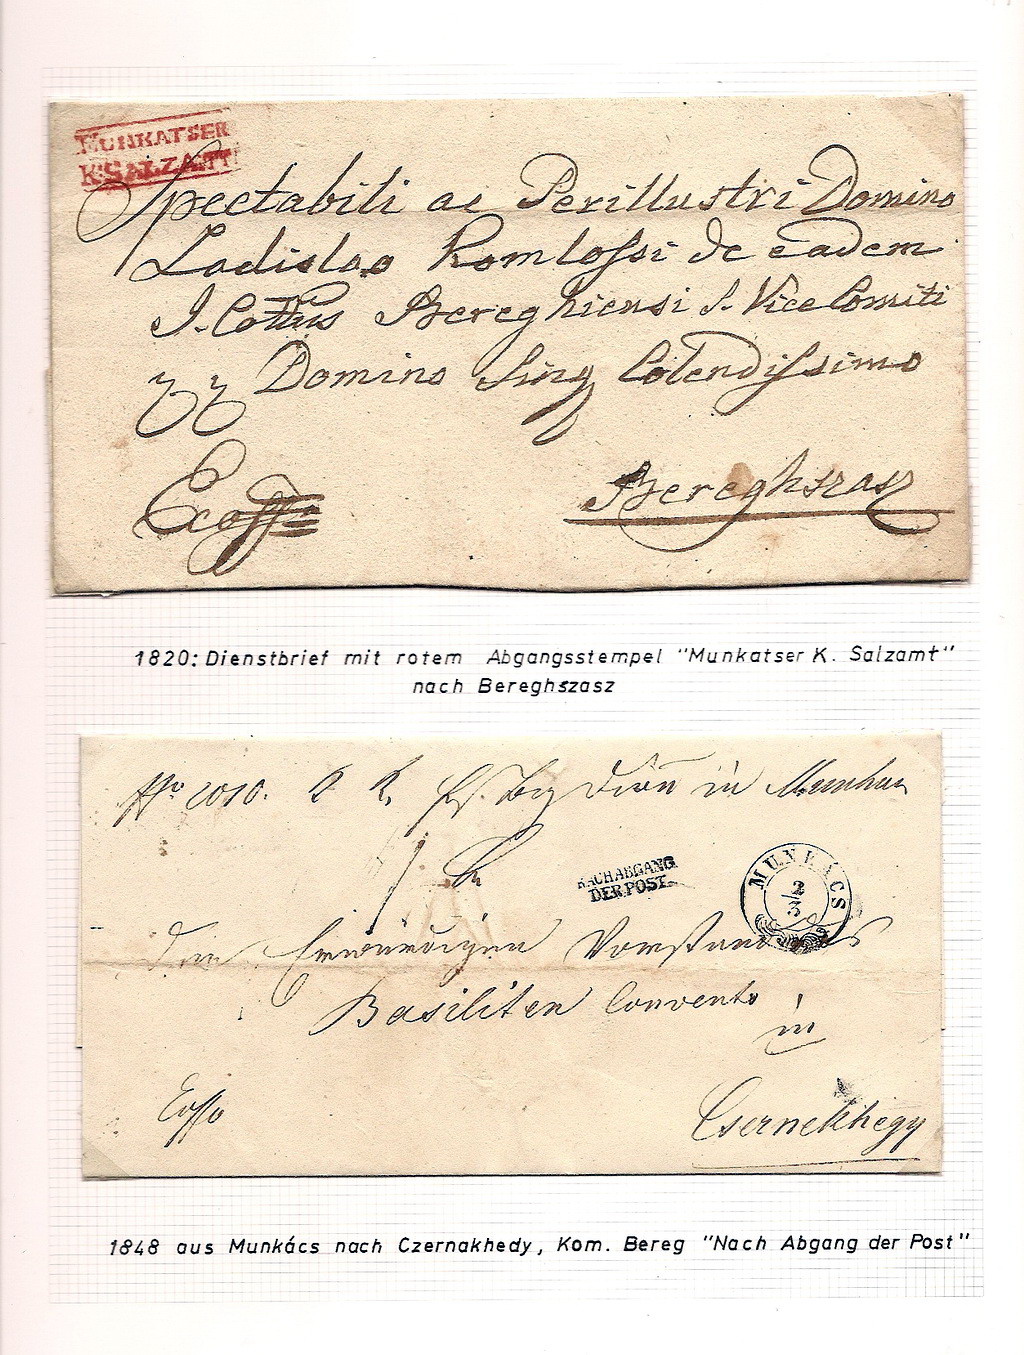 MUNKATSER
K:SALZAMT
Spectabili ac Perillustri Domino
Ladislao Komlossi de eadem
I. Cottus Bereghiensi S. Vice Comiti
Domino Sing Colendissimo
Ex offo
Bereghszasz
1820: Dienstbrief mit rotem Abgangsstempel "Munkatser K. Salzamt"
nach Bereghszasz
No 2010. in
NACH ABGANG
DER POST.
MUNKÁCS
2/3
Den Erwürdigen Vorstand des
Basiliten Convents
in
Ex offo
Csernekhegy
1848 aus Munkács nach Czernakhedy, Kom. Bereg "Nach Abgang der Post"